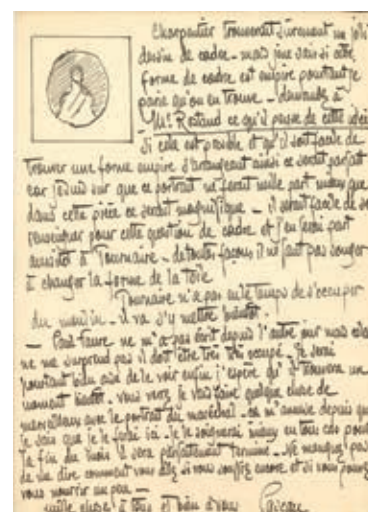 Charpentier trouverait surement un joli
dessin de cadre - mais je ne sais si cette
forme de cadre est empire pourtant je
parie qu'on en trouve - demandez à
Mr. Rostand ce qu'il pense de cette idée
Si cela est possible et qu'il soit facile de
trouver une forme empire s'arrangeant ainsi ce serait parfait
car je suis sur que ce portrait ne ferait nulle part mieux que
dans cette pièce ce serait magnifique - il serait facile de se
renseigner pour cette question de cadre et j'en ferai part
aussitot à Tournaire - de toutes façons il ne faut pas songer
à changer la forme de la toile
Tournaire n'a pas eu le temps de s'occuper
du moulin - il va s'y mettre bientot.
- Paul Faure ne m'a pas écrit depuis l'autre jour mais cela
ne me surprend pas il doit être très très occupé - Je serai
pourtant bien aise de le voir enfin j'espère qu'il trouvera un
moment bientot - vous verrez je vais faire quelque chose de
merveilleux avec le portrait du maréchal - ça m'amuse depuis que
je sais que je le ferai ici - je le soignerai mieux en tous cas pour
la fin du mois il sera parfaitement terminé - Ne manquez pas
de me dire comment vous allez si vous souffrez encore et si vous pouvez
vous nourrir un peu -
mille choses à tous et bien à vous